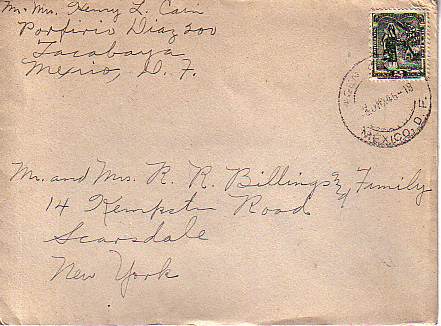 Mr. Mrs. Henry L. Cain
Porfirio Diaz 200
Tacabaya
Mexico, D. F.
MEXICO, D. F.
Mr. and Mrs. R. R. Billings & Family
14 Kempster Road
Scarsdale
New York